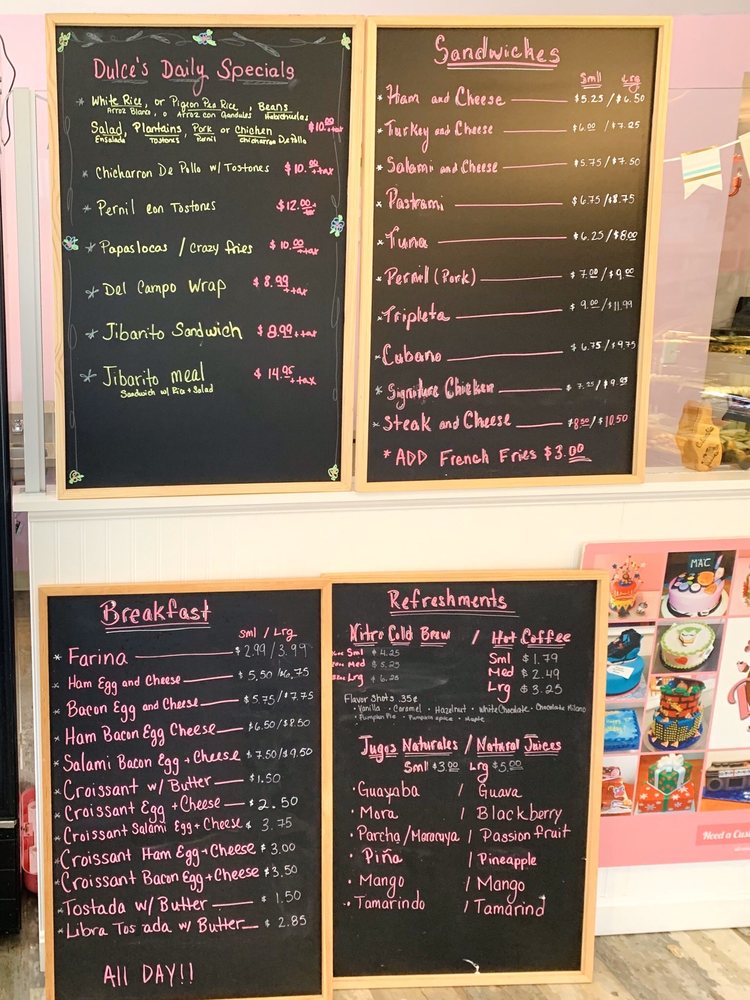 Dulce's Daily Specials
* White Rice, or Pigeon Pea Rice, Beans
Arroz Blanco, o Arroz con Gandules Habichuelas
Salad, Plantains, Pork or Chicken $10.00+tax
Ensalada Tostones Pernil Chicharron De Pollo
* Chicharron De Pollo w/ Tostones $10.00+tax
* Pernil con Tostones $12.00+tax
* Papaslocas / Crazy fries $10.00+tax
* Del Campo Wrap $8.99+tax
* Jibarito Sandwich $8.99+tax
* Jibarito meal $14.95+tax
Sandwich w/ Rice + Salad
Sandwiches
Smll Lrg
* Ham and Cheese $5.25/$6.50
* Turkey and Cheese $6.00/$7.25
* Salami and Cheese $5.75/$7.50
* Pastrami $6.75/$8.75
* Tuna $6.25/$8.00
* Pernil (Pork) $7.00/$9.00
* Tripleta $9.00/$11.99
* Cubano $6.75/$9.75
* Signature Chicken $7.25/$9.95
* Steak and Cheese $8.50/$10.50
* ADD French Fries $3.00
Breakfast
sml / Lrg
* Farina $2.99/3.99
* Ham Egg and Cheese $5.50/$6.75
* Bacon Egg and Cheese $5.75/$7.75
* Ham Bacon Egg Cheese $6.50/$8.50
* Salami Bacon Egg + Cheese $7.50/$9.50
* Croissant w/ Butter $1.50
* Croissant Egg + Cheese $2.50
* Croissant Salami Egg + Cheese $3.75
* Croissant Ham Egg + Cheese $3.00
* Croissant Bacon Egg + Cheese $3.50
* Tostada w/ Butter $1.50
* Libra Tos ada w/ Butter $2.85
All DAY!!
Refreshments
Nitro Cold Brew / Hot Coffee
Sml $4.25 Sml $1.79
Med $5.25 Med $2.49
Lrg $6.25 Lrg $3.25
Flavor Shots .35¢
• Vanilla • Caramel • Hazelnut • White Chocolate • Chocolate Milano
• Pumpkin Pie • Pumpkin spice • Maple
Jugos Naturales / Natural Juices
Smll $3.00 Lrg $5.00
• Guayaba / Guava
• Mora / Blackberry
• Parcha/Maracuya / Passion fruit
• Piña / Pineapple
• Mango / Mango
• Tamarindo / Tamarind
MAC
Need a Cus